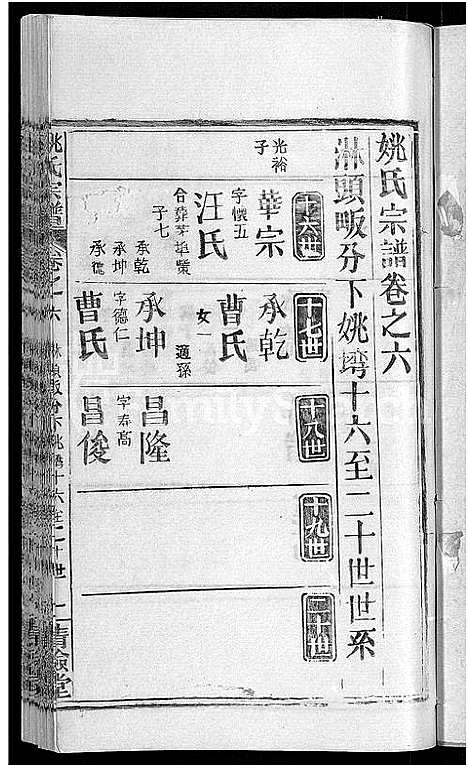 姚氏宗譜卷之六
淋頭畈分下姚塆十六至二十世世系
十六世
十七世
十八世
十九世
二十世
光裕子
華宗
字懷五
汪氏
合葬
子七
承乾
承坤
承德
承乾
曹氏
女一
適孫
承坤
字德仁
曹氏
昌隆
字泰高
昌俊
姚氏宗譜
卷之六
淋頭畈分下姚塆十六至二十世
一